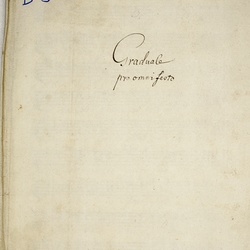 Graduale
pro omni festo